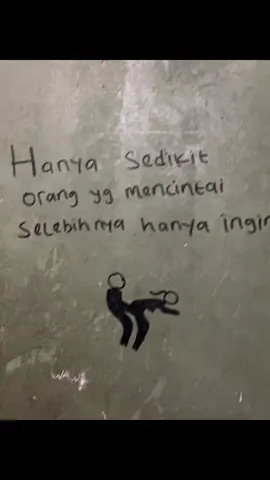 Hanya Sedikit
orang yg mencintai
Selebihnya hanya ingin